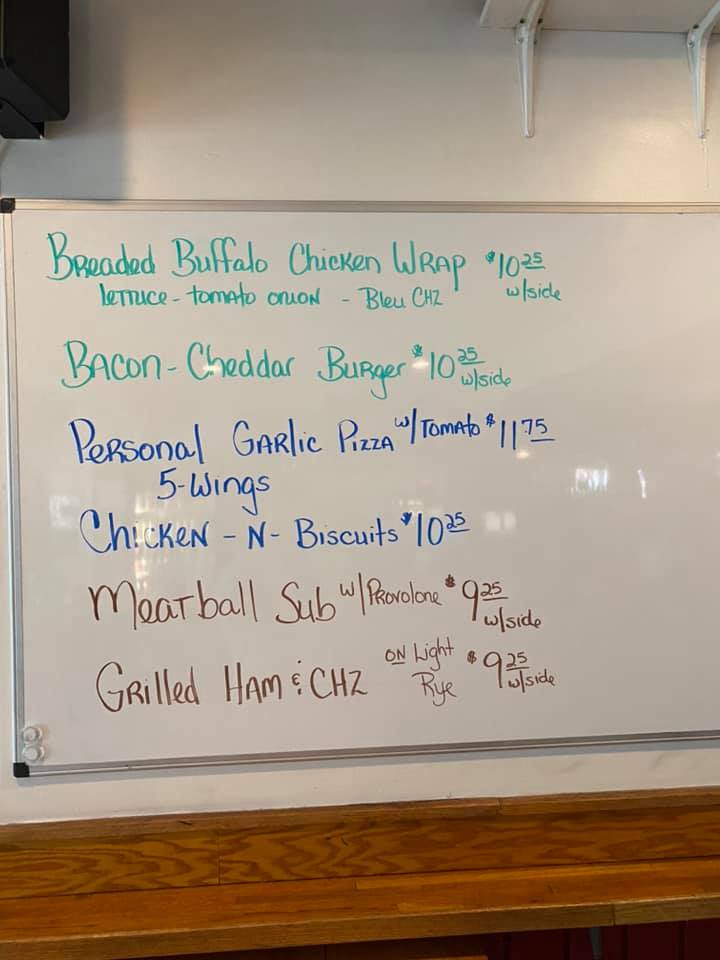 Breaded Buffalo Chicken Wrap $10.25
Lettuce - tomato onion - Bleu CHZ w/side
Bacon - Cheddar Burger $10.25 w/side
Personal Garlic Pizza w/Tomato $11.75
5-Wings
Chicken - N - Biscuits $10.25
Meatball Sub w/Provolone $9.25
w/side
Grilled Ham & CHZ on Light Rye $9.25 w/side